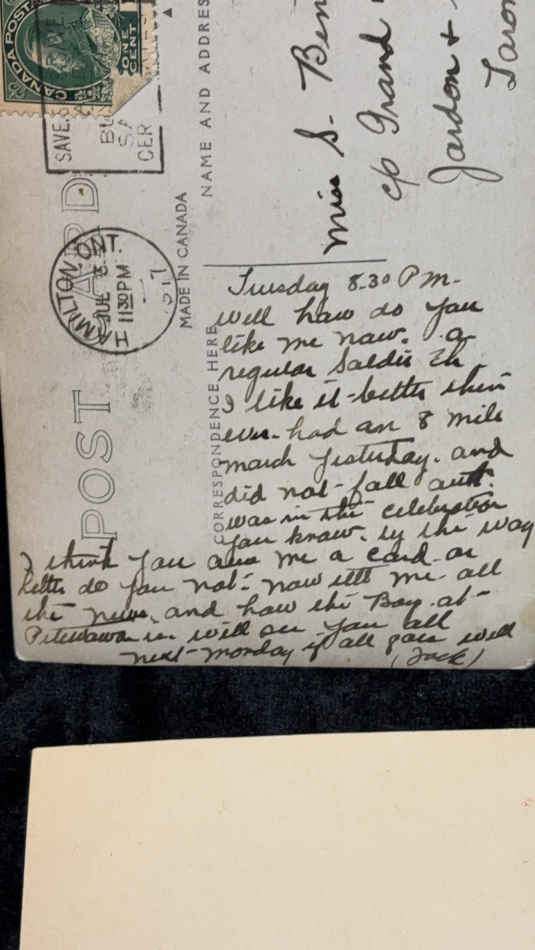 CANADA POSTAGE
ONE
CENT
SAVE
BU
SA
CER
NAME AND ADDRES
Miss S. Ben
c/o Grand
Jardon &
Toron
HAMILTON, ONT.
JUL 3
1130 PM
1917
MADE IN CANADA
POST CARD
CORRESPONDENCE HERE
Tuesday 8.30 P.M.
well how do you
like me now. a
regular Soldir Eh
I like it better then
ever. had an 8 mile
march yesterday. and
did not fall out.
was in the celebration
you know. by the way
I think you owe me a card or
letter do you not. now tell me all
the news. and how the Boy at
Petewawa is will see you all
next monday if all goes well
(Jack)